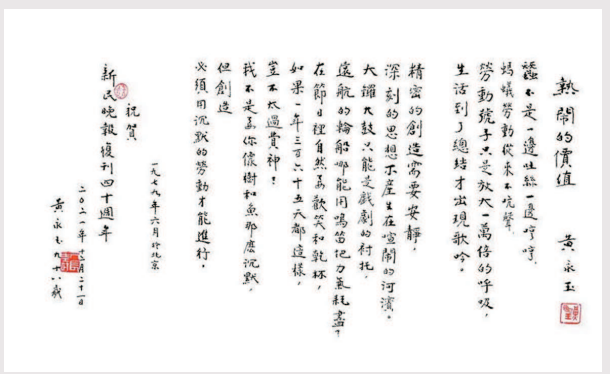 熱鬧的價值 黃永玉
蠶不是一邊吐絲一邊哼哼,
螞蟻勞動從來不吭聲,
勞動號子只是放大一萬倍的呼吸,
生活到了總結才出現歌吟。
精密的創造需要安靜,
深刻的思想不產生在喧鬧的河濱。
大鑼大鼓只能是戲劇的襯托,
遠航的輪船哪能用鳴笛把力氣耗盡?
在節日裡自然要歡笑和乾杯,
如果一年三百六十五天都這樣,
豈不太過費神?
我不是要你像樹和魚那麼沉默,
但創造
必須用沉默的勞動才能進行。
一九七九年六月於北京
祝賀
新民晚報復刊四十週年
二〇二一年十二月二十一日
黃永玉九十八歲